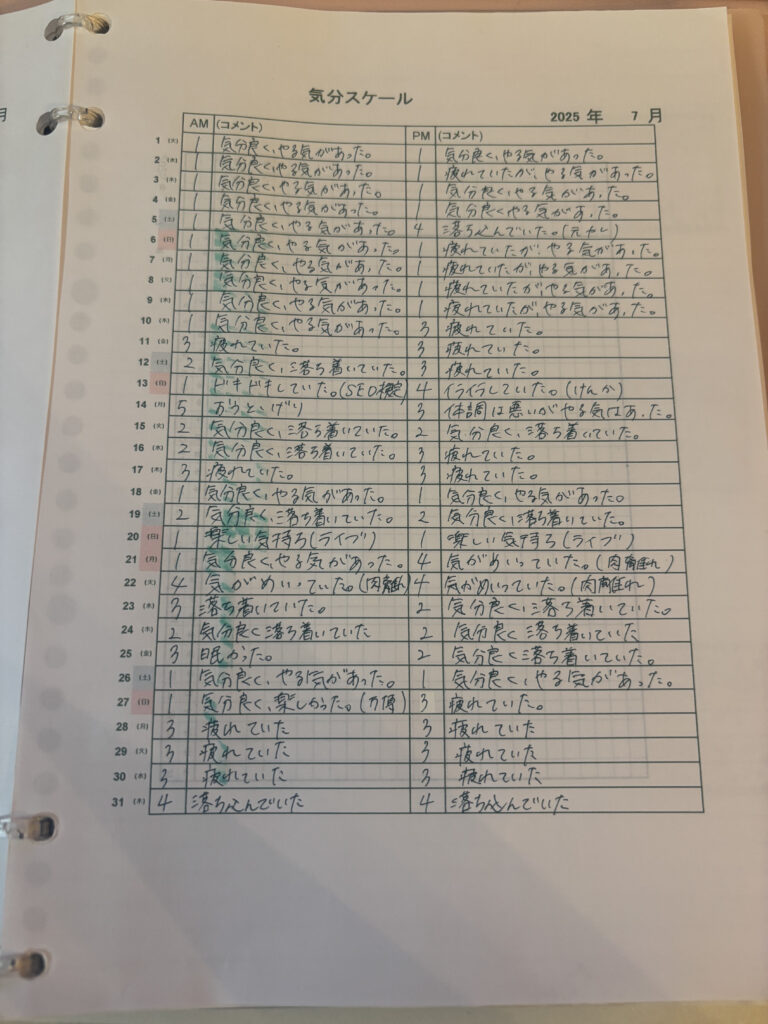 気分スケール
2025 年 7 月
AM (コメント) PM (コメント)
1 (火) 1 気分良く、やる気があった。 1 気分良く、やる気があった。
2 (水) 1 気分良く、やる気があった。 1 疲れていたが、やる気があった。
3 (木) 1 気分良く、やる気があった。 1 気分良く、やる気があった。
4 (金) 1 気分良く、やる気があった。 1 気分良く、やる気があった。
5 (土) 1 気分良く、やる気があった。 4 落ち込んでいた。(元カレ)
6 (日) 1 気分良く、やる気があった。 1 疲れていたが、やる気があった。
7 (月) 1 気分良く、やる気があった。 1 疲れていたが、やる気があった。
8 (火) 1 気分良く、やる気があった。 1 疲れていたが、やる気があった。
9 (水) 1 気分良く、やる気があった。 1 疲れていたが、やる気があった。
10 (木) 1 気分良く、やる気があった。 3 疲れていた。
11 (金) 3 疲れていた。 3 疲れていた。
12 (土) 2 気分良く、落ち着いていた。 3 疲れていた。
13 (日) 1 ドキドキしていた。(SEO検定) 4 イライラしていた。(けんか)
14 (月) 5 おうと、げり 3 体調は悪いがやる気はあった。
15 (火) 2 気分良く、落ち着いていた。 2 気分良く、落ち着いていた。
16 (水) 2 気分良く、落ち着いていた。 3 疲れていた。
17 (木) 3 疲れていた。 3 疲れていた。
18 (金) 1 気分良く、やる気があった。 1 気分良く、やる気があった。
19 (土) 2 気分良く、落ち着いていた。 2 気分良く、落ち着いていた。
20 (日) 1 楽しい気持ち(ライブ) 1 楽しい気持ち(ライブ)
21 (月) 1 気分良く、やる気があった。 4 気がめいっていた。(肉離れ)
22 (火) 4 気がめいっていた。(肉離れ) 4 気がめいっていた。(肉離れ)
23 (水) 3 落ち着いていた。 2 気分良く、落ち着いていた。
24 (木) 2 気分良く落ち着いていた 2 気分良く落ち着いていた
25 (金) 3 眠かった。 2 気分良く落ち着いていた。
26 (土) 1 気分良く、やる気があった。 1 気分良く、やる気があった。
27 (日) 1 気分良く、楽しかった。(万博) 3 疲れていた。
28 (月) 3 疲れていた 3 疲れていた
29 (火) 3 疲れていた 3 疲れていた
30 (水) 3 疲れていた 3 疲れていた
31 (木) 4 落ち込んでいた 4 落ち込んでいた